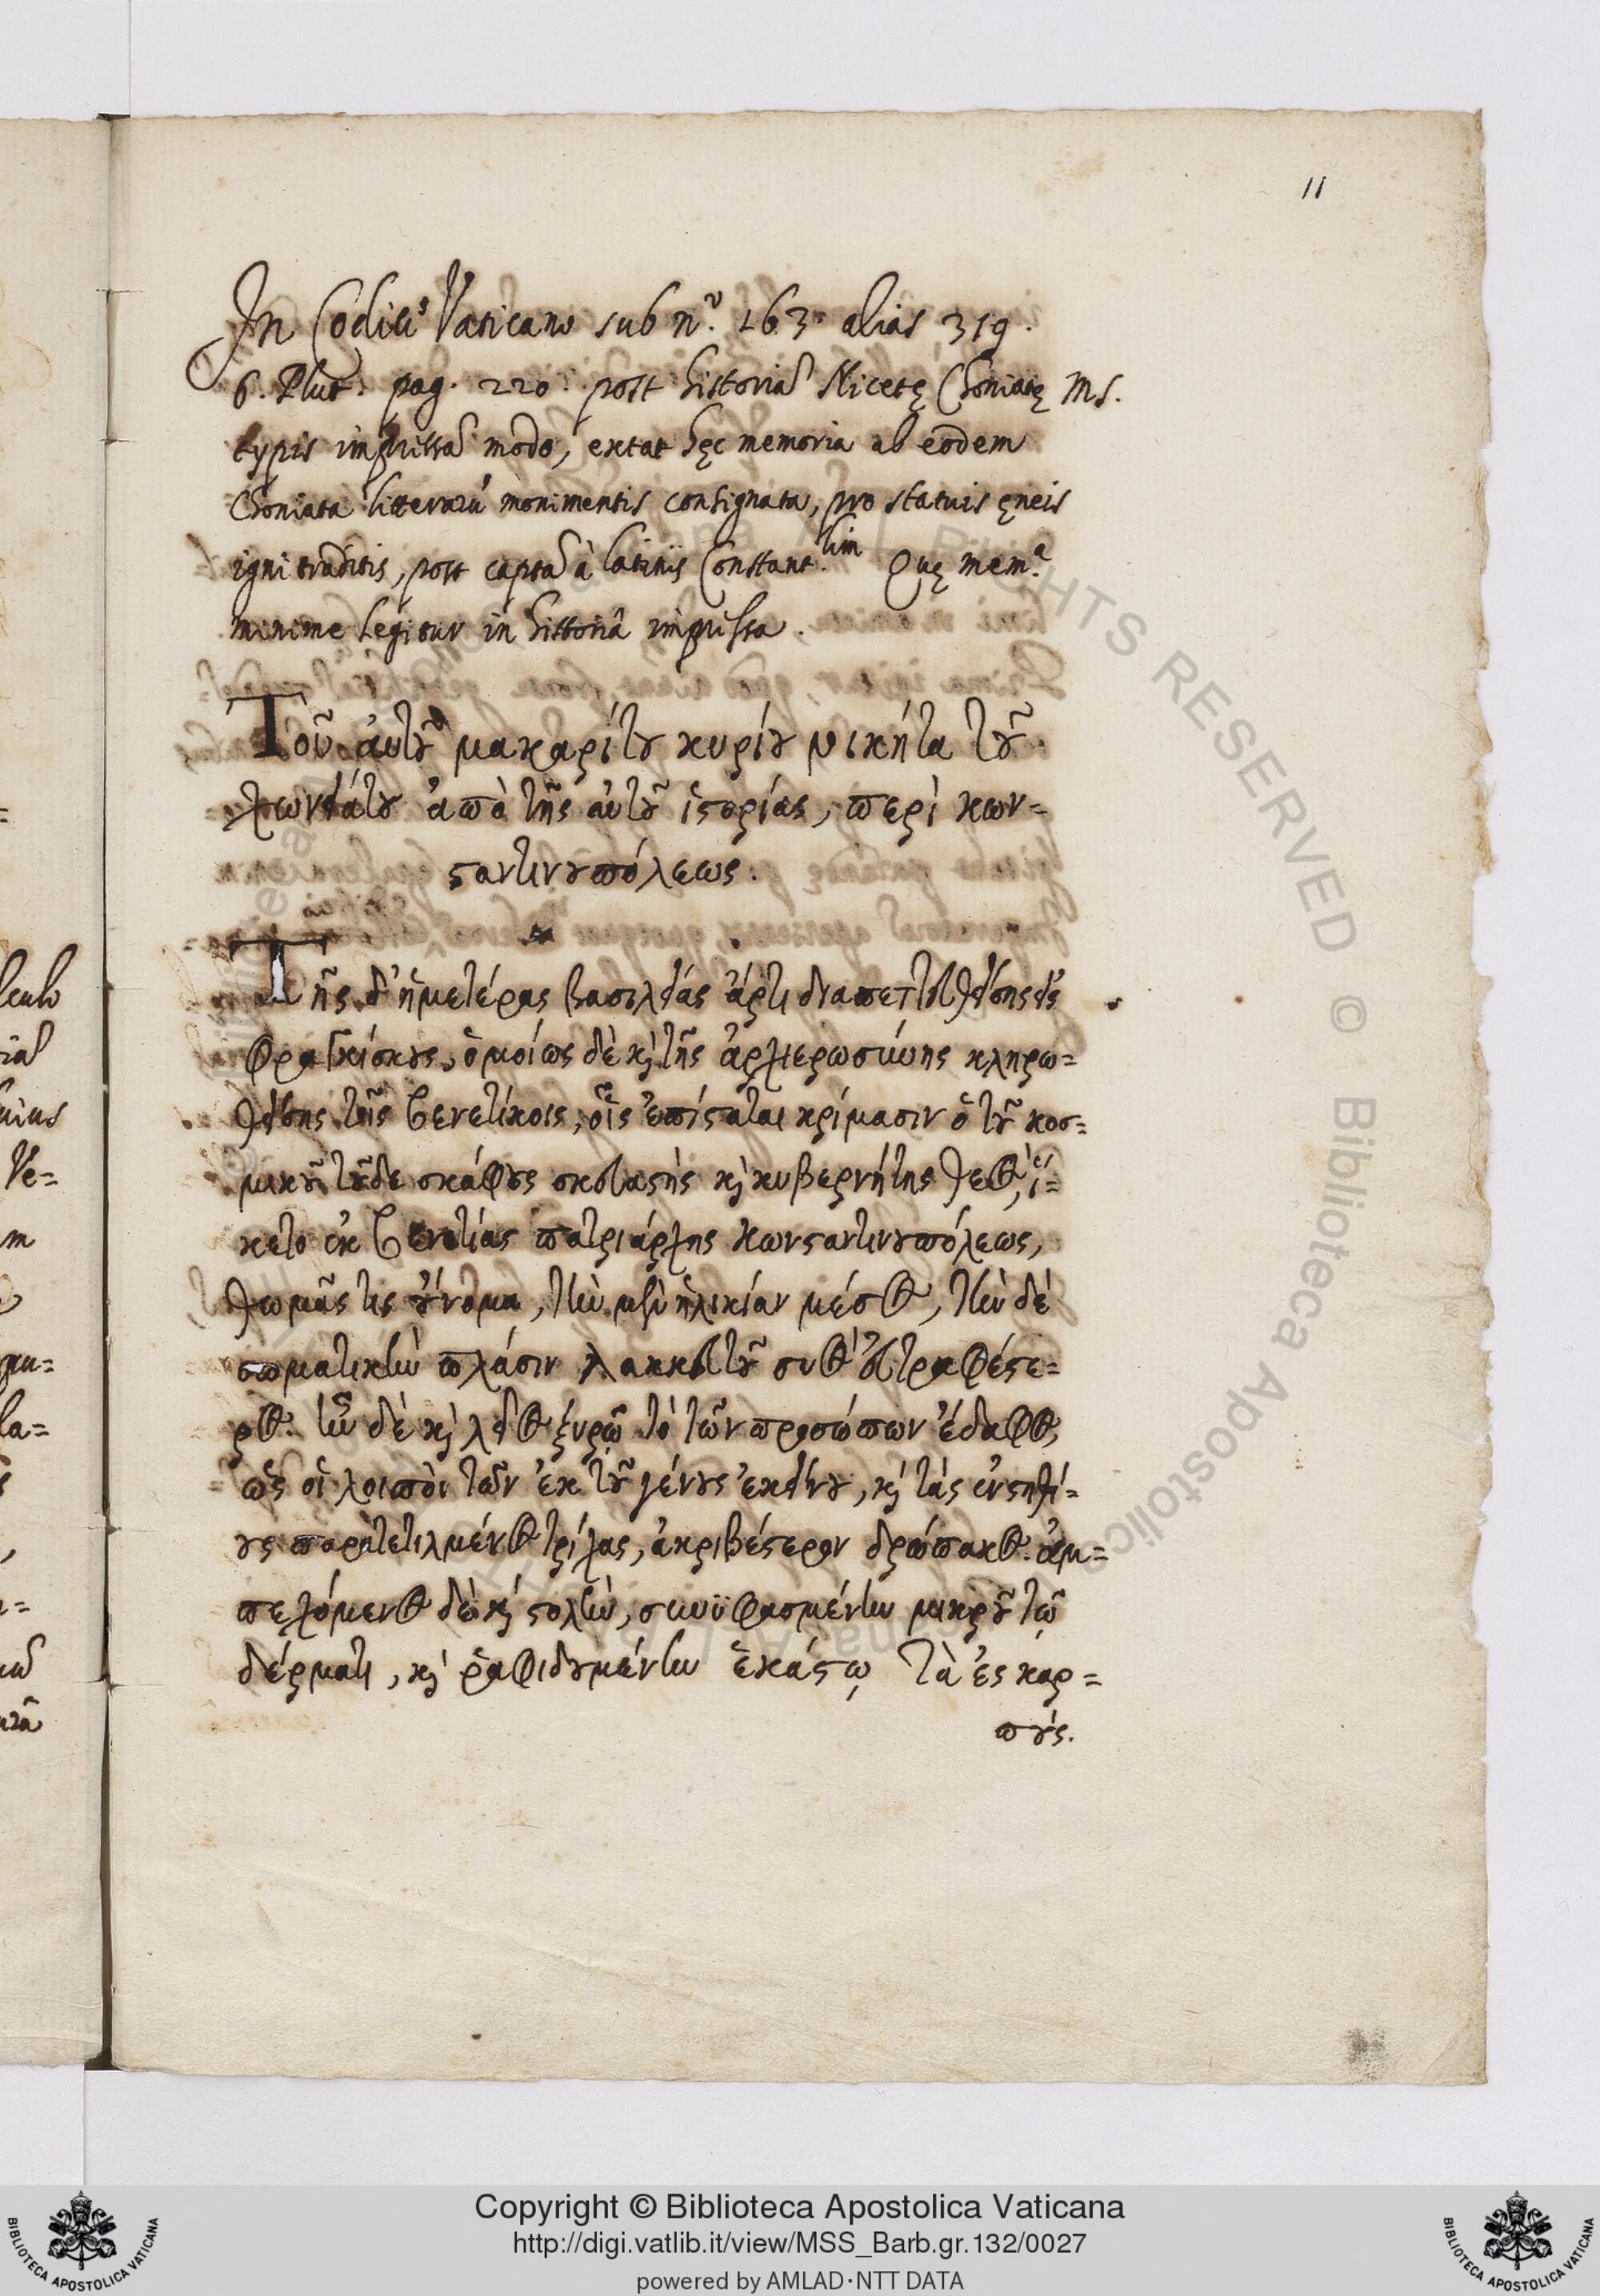 11
In Codice Vaticano sub nº. 163. alias 319.
6. Plut. pag. 220. post historiã Nicetę Choniatę MS.
typis impressã modo, extat hęc memoria ab eodem
Choniata litterarũ monimentis consignata, pro statuis ęneis
igni traditis, post captã à Latinis Constant.lim Quę mem.ª
minime legitur in historiâ impressa.
Τοῦ αὐτοῦ μακαρίτου κυρίου νικήτα τοῦ
χωνειάτου ἀπὸ τῆς αὐτοῦ ἱστορίας, περὶ κων=
σταντινουπόλεως.
Τῆς δ' ἡμετέρας βασιλείας ἄρτι διαπεττευθείσης εἰς
Φραγκίσκους, ὁμοίως δὲ κὶ τῆς ἀρχιερωσύνης κληρω=
θείσης τοῖς βενετίκοις, οἷς ἐπίσταται κρίμασιν ὁ τοῦ κοσ=
μικοῦ τοῦδε σκάφους σκευαστὴς κὶ κυβερνήτης θεὸς, ἵ=
κετο ἐκ βενετίας πατριάρχης κωνσταντινουπόλεως,
θωμᾶς τις τοὔνομα, τὴν μὲν ἡλικίαν μέσος, τὴν δὲ
σωματικὴν πλάσιν λακκευτοῦ συὸς εὐτραφέστε=
ρος. ἦν δὲ κὶ λεῖος ξυρῷ τὸ τῶν προσώπων ἔδαφος,
ὡς οἱ λοιποὶ τῶν ἐκ τοῦ γένους ἐκείνου, κὶ τὰς ἐνστηθί=
ους παρατετιλμένος τρίχας, ἀκριβέστερον δρώπακος. ἀμ=
πεχόμενος δὲ κὶ στολὴν, συνυφασμένην μικροῦ τῷ
δέρματι, κὶ ῥαφιδουμένην ἑκάστῳ τὰ ἐς καρ=
πούς.
Copyright © Biblioteca Apostolica Vaticana
http://digi.vatlib.it/view/MSS_Barb.gr.132/0027
powered by AMLAD·NTT DATA